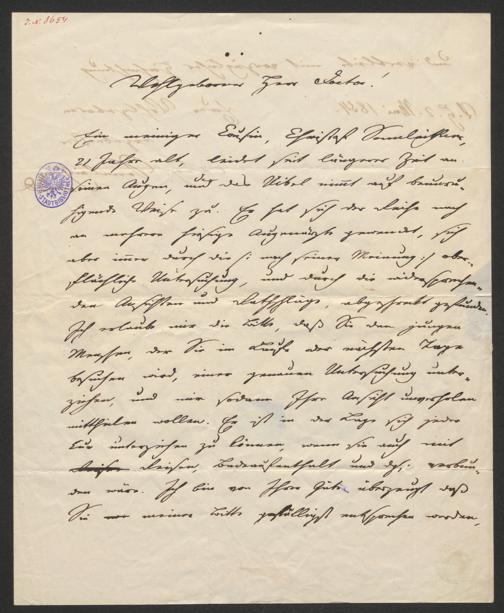 J. N. 8654
Wohlgeborner Herr Doctor!
Ein meiniger Cousin, Christof Sonnleithner,
21 Jahre alt, leidet seit längerer Zeit an
seinen Augen, und das Übel nimt auf beunru-
higende Weise zu. Er hat sich der Reihe nach
an mehrere hiesige Augenärzte gewendet, sich
aber imer durch die /: nach seiner Meinung :/ ober-
flächliche Untersuchung, und durch die widersprechen-
den Ansichten und Rathschläge, abgeschreckt gefunden.
Ich erlaube mir die Bitte, daß Sie den jungen
Menschen, der Sie im Laufe der nächsten Tage
besuchen wird, einer genauen Untersuchung unter-
ziehen, und mir sodann Ihre Ansicht unverholen
mittheilen wollen. Er ist in der Lage sich jeder
Cur unterziehen zu können, wenn sie auch mit
Reisen, Badeaufenthalt und dgl. verbun-
den wäre. Ich bin von Ihrer Güte überzeugt daß
Sie meiner Bitte gefälligst entsprechen werden,